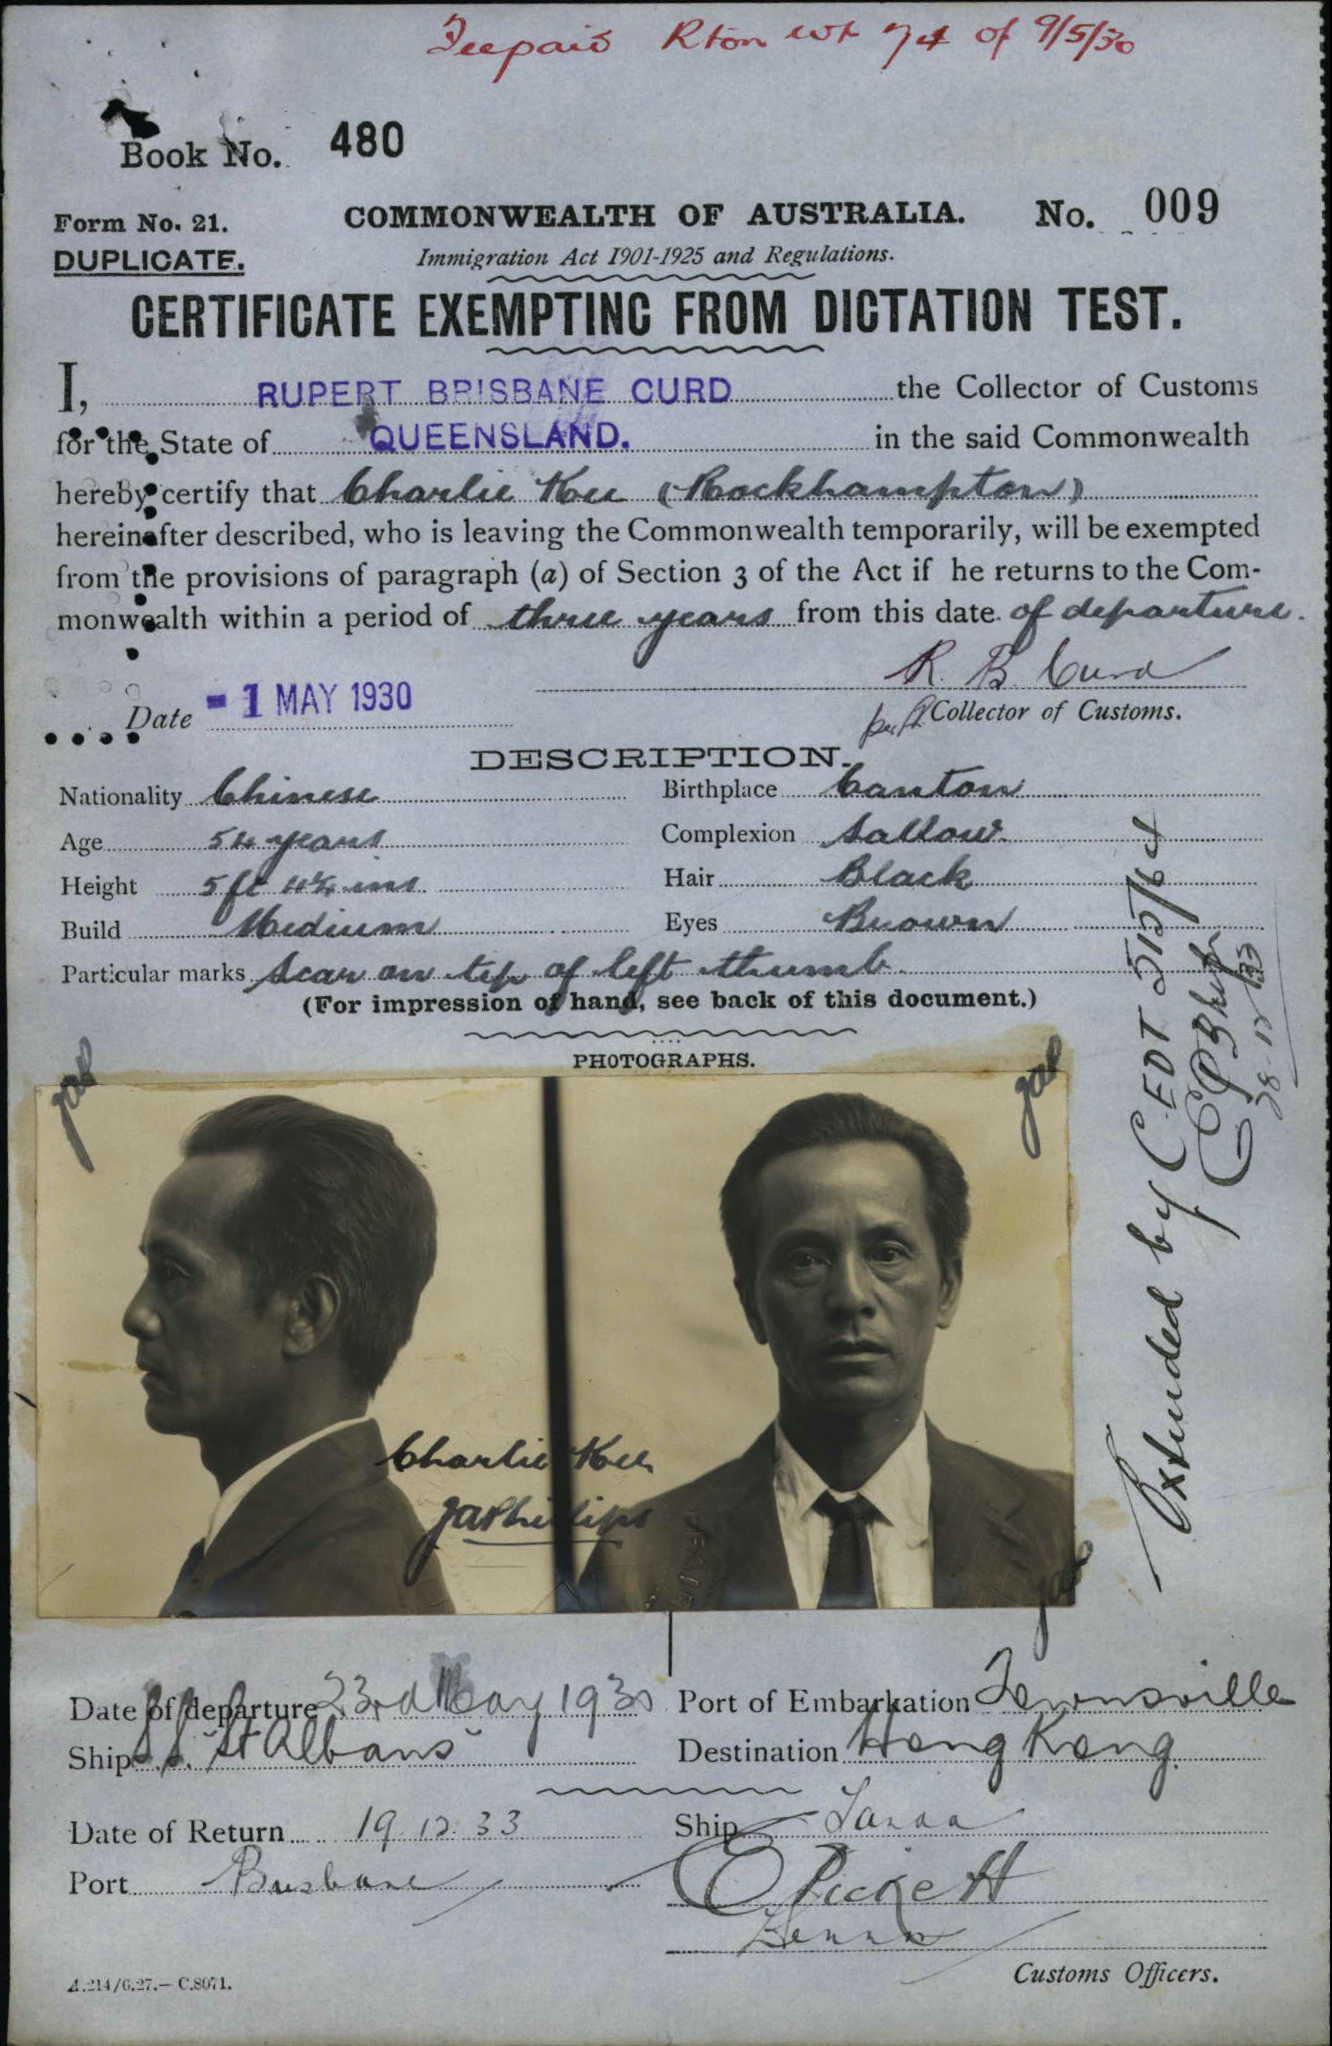 Fee paid Rton wt 74 of 9/5/30
Book No. 480
Form No. 21. COMMONWEALTH OF AUSTRALIA. No. 009
DUPLICATE. Immigration Act 1901-1925 and Regulations.
CERTIFICATE EXEMPTING FROM DICTATION TEST.
I, RUPERT BRISBANE CURD the Collector of Customs
for the State of QUEENSLAND. in the said Commonwealth
hereby certify that Charlie Kee (Rockhampton)
hereinafter described, who is leaving the Commonwealth temporarily, will be exempted
from the provisions of paragraph (a) of Section 3 of the Act if he returns to the Com-
monwealth within a period of three years from this date of departure.
R. B. Curd
Date - 1 MAY 1930 Collector of Customs.
DESCRIPTION.
Nationality Chinese Birthplace Canton
Age 54 years Complexion Sallow
Height 5 ft ins Hair Black
Build Medium Eyes Brown
Particular marks Scar on tip of left thumb
(For impression of hand, see back of this document.)
PHOTOGRAPHS.
jap jap
Charlie Kee
JAPhillips
jap
Extended by CEDT 515/64
28.12.33
Date of departure 23rd May 1930 Port of Embarkation Townsville
Ship S.S. "St Albans" Destination Hong Kong.
Date of Return 19.12.33 Ship Tanda
Port Brisbane E Pickett
Customs Officers.
A.214/6.27.—C.8071.